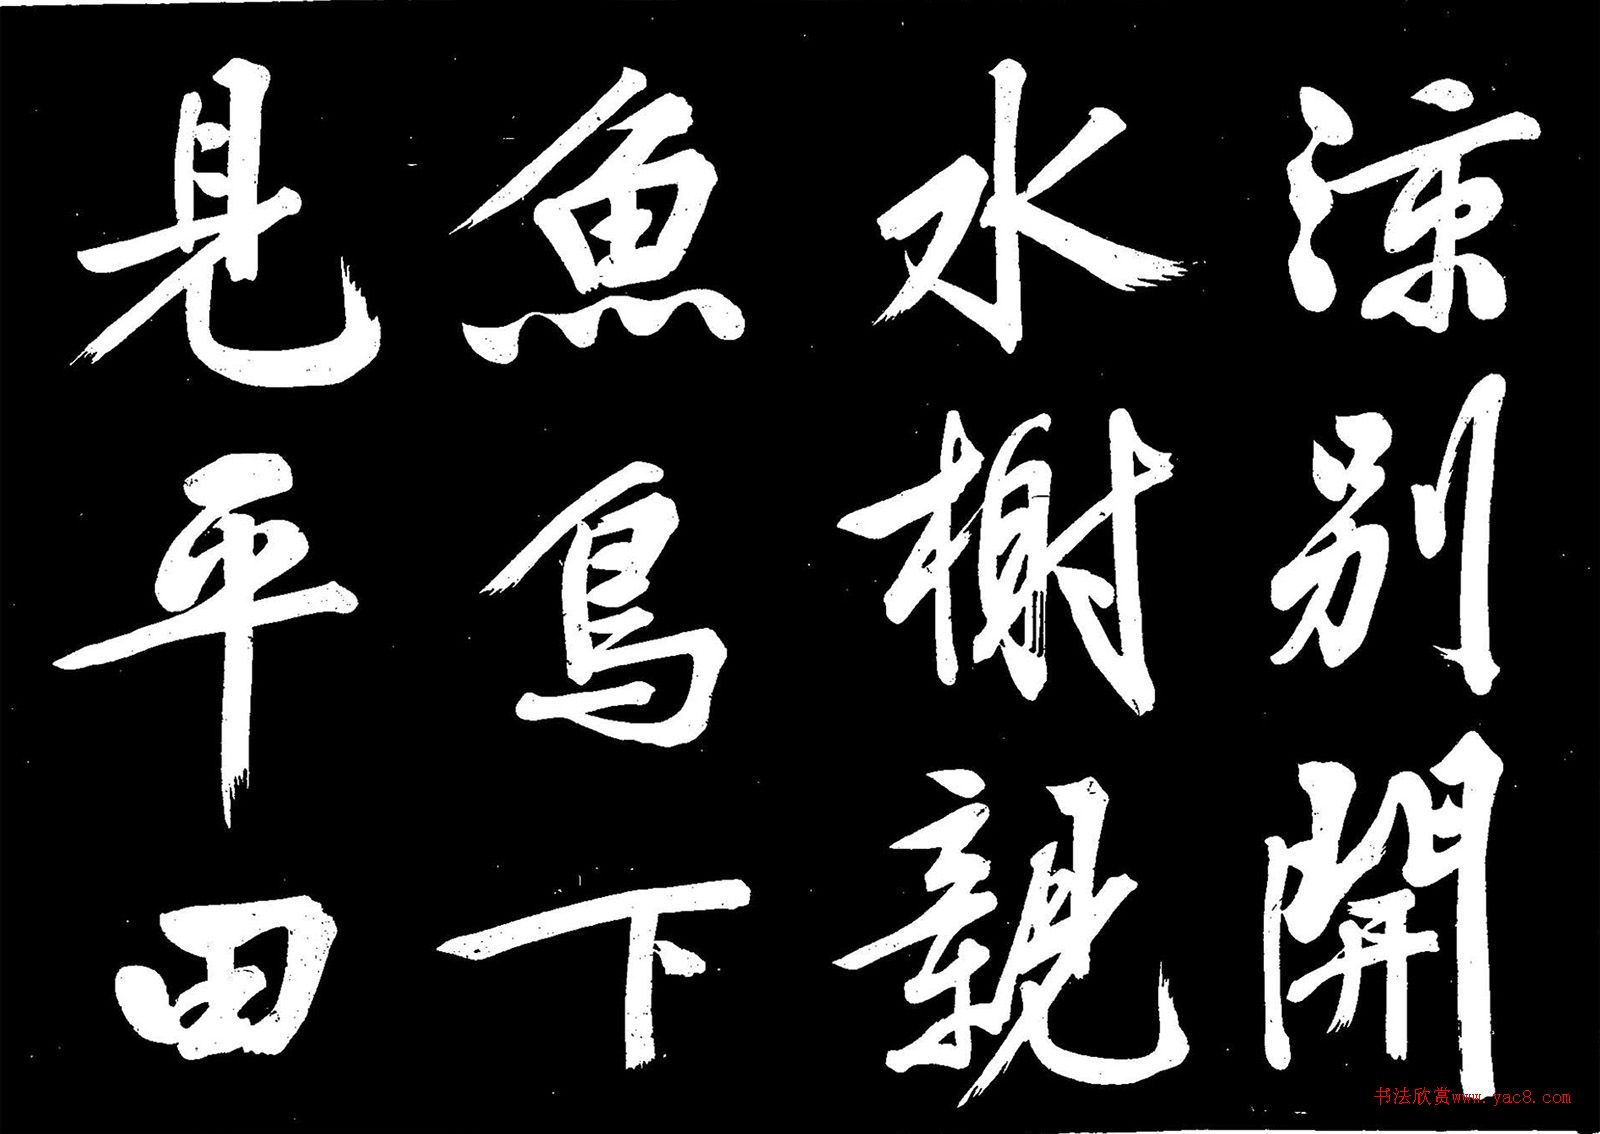 涼別開
水榭親
魚鳥下
見平田
书法欣赏www.yac8.com